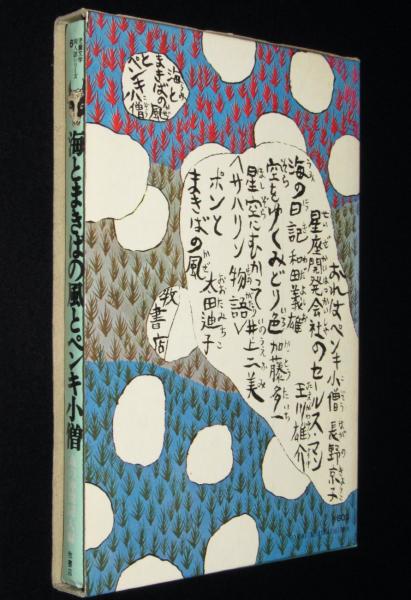 海と
まきばの風
とペンキ小僧
おれはペンキ小僧 長野京子
星座開発会社のセールス・マン
玉川雄介
海の日記 和田義雄
空をゆくみどり色 加藤多一
星空にむかって 井上二美
〈サハリン物語〉
ポンと
まきばの風 太田迪子
牧書店
海とまきばの風とペンキ小僧
牧書店